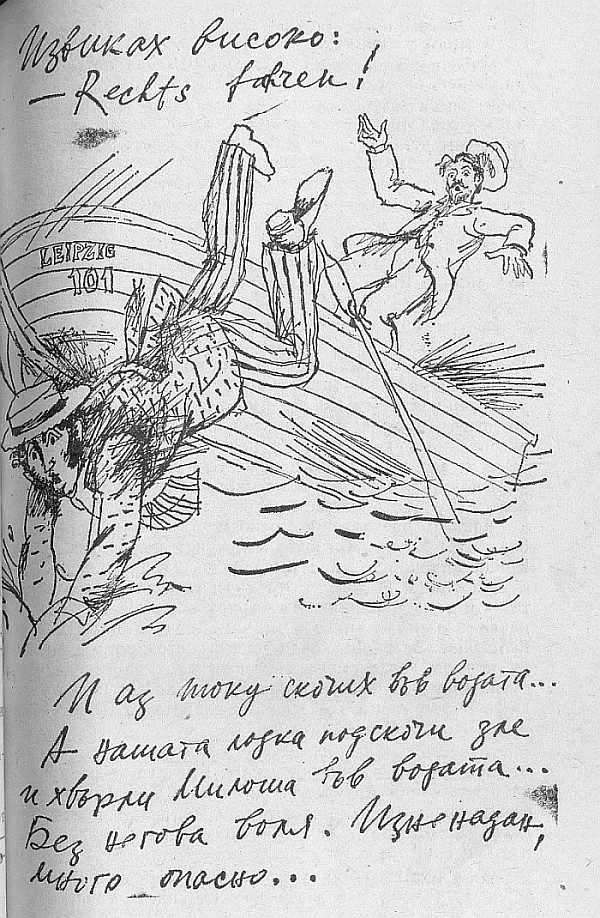 Извиках високо:
— Rechts fahren!
LEIPZIG
101
И аз току скочих във водата...
А нашата лодка подскочи зле
и хвърли Милоша във водата...
Без негова воля. Изненадан,
много опасно...